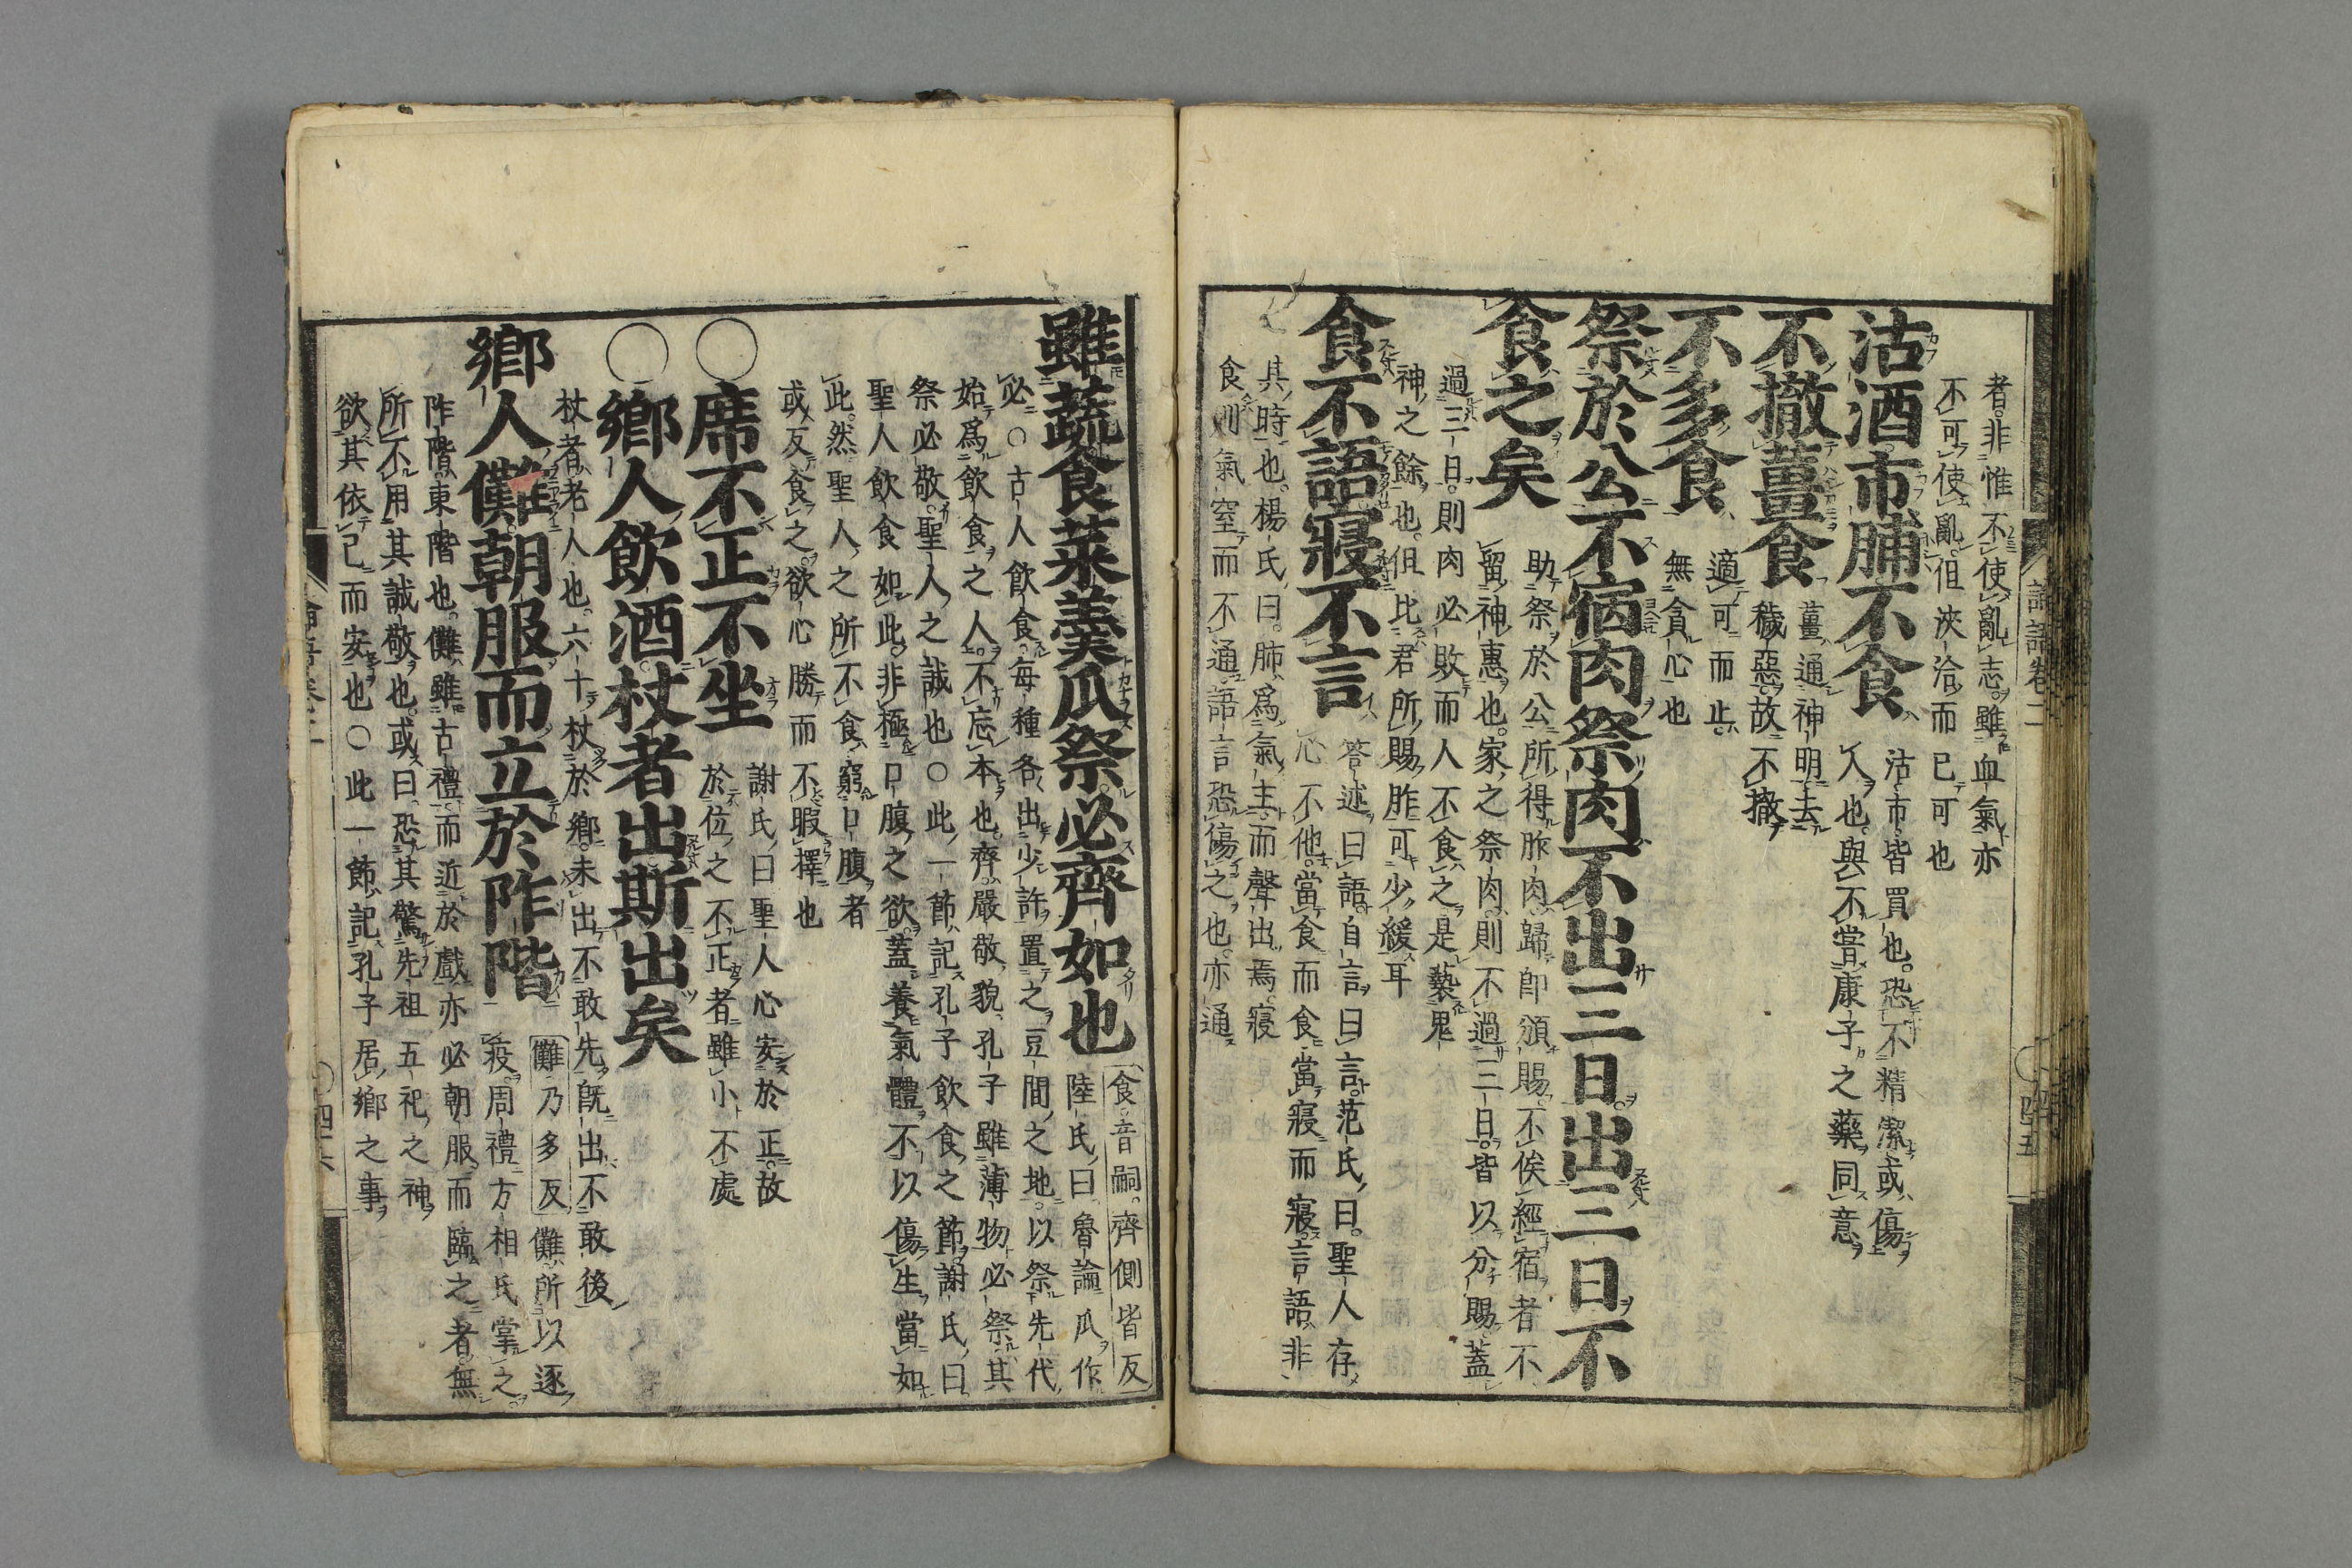 者非惟不使亂志雖血氣亦
不可使亂但浹洽而已可也
沽酒市脯不食
沽市皆買也恐不精潔或傷
人也與不嘗康子之藥同意
不撤薑食
薑通神明去
穢惡故不撤
不多食
適可而止
無貪心也
祭於公不宿肉祭肉不出三日出三日不
食之矣
助祭於公所得胙肉歸即頒賜不俟經宿者不
留神惠也家之祭肉則不過三日皆以分賜蓋
過三日則肉必敗而人不食之是褻鬼
神之餘也但比君所賜胙可少緩耳
食不語寢不言
答述曰語自言曰言范氏曰聖人存
心不他當食而食當寢而寢言語非
其時也楊氏曰肺爲氣主而聲出焉寢
食則氣窒而不通語言恐傷之也亦通
論語卷二
〇四五
雖蔬食菜羹瓜祭必齊如也
食音嗣齊側皆反
陸氏曰魯論瓜作
必〇古人飲食每種各出少許置之豆間之地以祭先代
始爲飲食之人不忘本也齊嚴敬貌孔子雖薄物必祭其
祭必敬聖人之誠也〇此一節記孔子飲食之節謝氏曰
聖人飲食如此非極口腹之欲蓋養氣體不以傷生當如
此然聖人之所不食窮口腹者
或反食之欲心勝而不暇擇也
〇席不正不坐
謝氏曰聖人心安於正故
於位之不正者雖小不處
〇鄉人飲酒杖者出斯出矣
杖者老人也六十杖於鄉未出不敢先既出不敢後
鄉人儺朝服而立於阼階
儺乃多反儺所以逐
疫周禮方相氏掌之
阼階東階也儺雖古禮而近於戲亦必朝服而臨之者無
所不用其誠敬也或曰恐其驚先祖五祀之神
欲其依己而安也〇此一節記孔子居鄉之事
論語卷二
〇四六